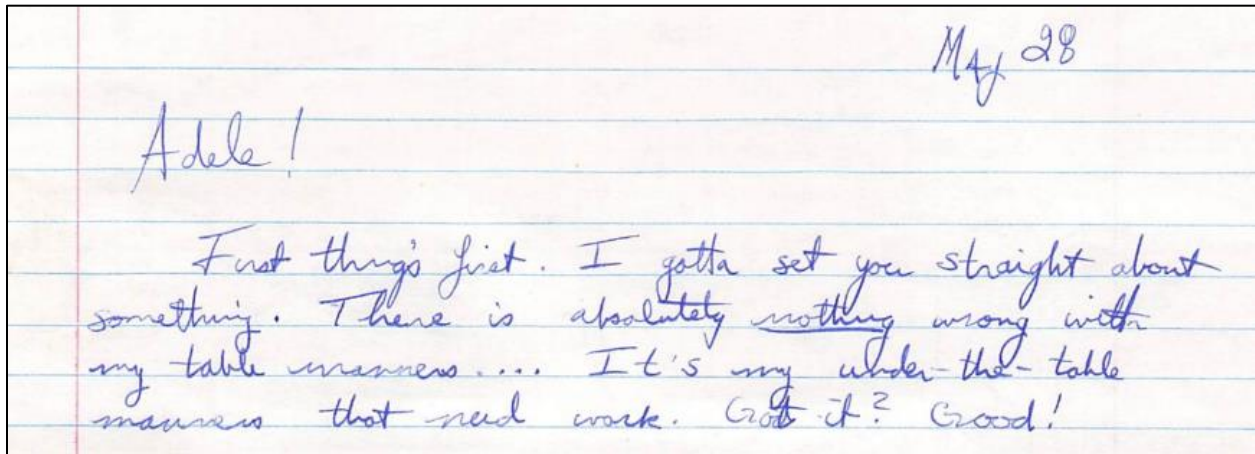 May 28
Adele!
First thing's first. I gotta set you straight about
something. There is absolutely nothing wrong with
my table manners.... It's my under-the-table
manners that need work. Got it? Good!